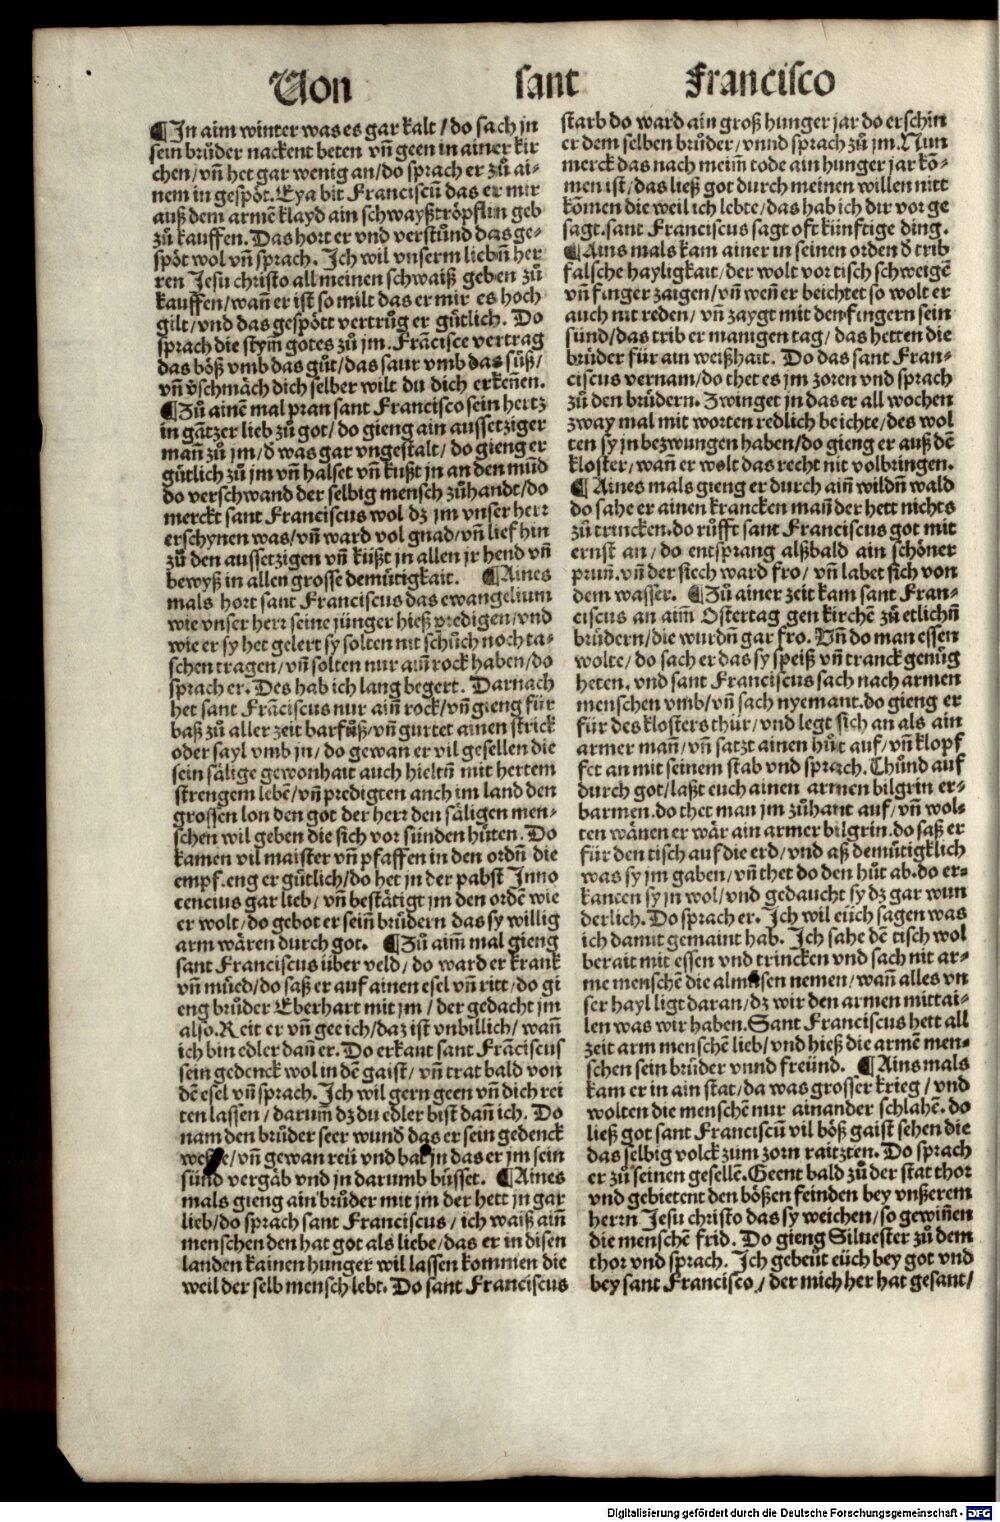 Von sant Francisco
¶In aim winter was es gar kalt / do sach jn
sein brůder nackent beten vñ geen in ainer kir
chen / vñ het gar wenig an / do sprach er zů ai-
nem in gespöt. Eya bit Franciscū das er mir
auß dem armē klayd ain schwayßtröpflin geb
zů kauffen. Das hort er vnd verstůnd das ge-
spöt wol vñ sprach. Ich wil vnserm liebñ her
ren Jesu christo all meinen schwaiß geben zů
kauffen / wañ er ist so milt das er mir es hoch
gilt / vnd das gespött vertrůg er gůtlich. Do
sprach die stym̄ gotes zů jm. Frācisce vertrag
das böß vmb das gůt / das saur vmb das süß /
vñ v̄schmäch dich selber wilt du dich erkeñen.
¶Zů ainē mal pran sant Francisco sein hertz
in gātzer lieb zů got / do gieng ain aussetziger
mañ zů jm / d̄ was gar vngestalt / do gieng er
gůtlich zů jm vñ halset vñ kußt jn an den mūd
do verschwand der selbig mensch zůhandt / do
merckt sant Franciscus wol dz jm vnser herr
erschynen was / vñ ward vol gnad / vñ lief hin
zů den aussetzigen vñ küßt jn allen jr hend vñ
bewyß in allen grosse demůtigkait. ¶Aines
mals hort sant Franciscus das ewangelium
wie vnser herr seine jünger hieß predigen / vnd
wie er sy het gelert sy solten nit schůch noch ta-
schen tragen / vñ solten nur aiñ rock haben / do
sprach er. Des hab ich lang begert. Darnach
het sant Frāciscus nur aiñ rock / vñ gieng für
baß zů aller zeit barfůß / vñ gurtet ainen strick
oder sayl vmb jn / do gewan er vil gesellen die
sein sälige gewonhait auch hieltñ mit hertem
strengem lebē / vñ predigten auch im land den
grossen lon den got der herr den säligen men-
schen wil geben die sich vor sünden hůten. Do
kamen vil maister vñ pfaffen in den ordñ die
empfieng er gůtlich / do het jn der pabst Inno
cencius gar lieb / vñ bestätigt jm den ordē wie
er wolt / do gebot er seiñ brůdern das sy willig
arm wären durch got. ¶Zů aim̄ mal gieng
sant Franciscus über veld / do ward er krank
vñ můed / do saß er auf ainen esel vñ ritt / do gi
eng brůder Eberhart mit jm / der gedacht jm
also. Reit er vñ gee ich / daz ist vnbillich / wañ
ich bin edler dañ er. Do erkant sant Frāciscus
sein gedenck wol in dē gaist / vñ trat bald von
dē esel vñ sprach. Ich wil gern geen vñ dich rei
ten lassen / darum̄ dz du edler bist dañ ich. Do
nam den brůder seer wund das er sein gedenck
weste / vñ gewan reü vnd bat jn das er jm sein
sünd vergäb vnd jn darumb bůsset. ¶Aines
mals gieng ain brůder mit jm der hett jn gar
lieb / do sprach sant Franciscus / ich waiß aiñ
menschen den hat got als liebe / das er in disen
landen kainen hunger wil lassen kommen die
weil der selb mensch lebt. Do sant Franciscus
starb do ward ain groß hunger jar do erschin
er dem selben brůder / vnnd sprach zů jm. Nun
merck das nach meim̄ tode ain hunger jar kō-
men ist / das ließ got durch meinen willen nitt
kōmen die weil ich lebte / das hab ich dir vor ge
sagt. sant Franciscus sagt oft künftige ding.
¶Ains mals kam ainer in seinen orden d̄ trib
falsche hayligkait / der wolt vor tisch schweigē
vñ finger zaigen / vñ weñ er beichtet so wolt er
auch nit reden / vñ zaygt mit den fingern sein
sünd / das trib er manigen tag / das hetten die
brůder für ain weißhait. Do das sant Fran-
ciscus vernam / do thet es jm zoren vnd sprach
zů den brůdern. Zwinget jn das er all wochen
zway mal mit worten redlich beichte / des wol
ten sy jn bezwungen haben / do gieng er auß dē
kloster / wañ er wolt das recht nit volbringen.
¶Aines mals gieng er durch aiñ wildñ wald
do sahe er ainen krancken mañ der hett nichts
zů trincken. do růfft sant Franciscus got mit
ernst an / do entsprang alßbald ain schöner
pruñ. vñ der siech ward fro / vñ labet sich von
dem wasser. ¶Zů ainer zeit kam sant Fran-
ciscus an aim̄ Ostertag gen kirchē zů etlichñ
brůdern / die wurdñ gar fro. Vñ do man essen
wolte / do sach er das sy speiß vñ tranck genůg
heten. vnd sant Franciscus sach nach armen
menschen vmb / vñ sach nyemant. do gieng er
für des klosters thür / vnd legt sich an als ain
armer mañ / vñ satzt ainen hůt auf / vñ klopf
fet an mit seinem stab vnd sprach. Thůnd auf
durch got / laßt euch ainen armen bilgrin er-
barmen. do thet man jm zůhant auf / vñ wol-
ten wänen er wär ain armer bilgrin. do saß er
für den tisch auf die erd / vnd aß demůtigklich
was sy jm gaben / vñ thet do den hůt ab. do er-
kanten sy jn wol / vnd gedaucht sy dz gar wun
derlich. Do sprach er. Ich wil eüch sagen was
ich damit gemaint hab. Ich sahe dē tisch wol
berait mit essen vnd trincken vnd sach nit ar-
me menschē die almůsen nemen / wañ alles vn
ser hayl ligt daran / dz wir den armen mittai-
len was wir haben. Sant Franciscus hett all
zeit arm menschē lieb / vnd hieß die armē men-
schen sein brůder vnnd freünd. ¶Ains mals
kam er in ain stat / da was grosser krieg / vnd
wolten die menschē nur ainander schlahē. do
ließ got sant Franciscū vil böß gaist sehen die
das selbig volck zum zorn raitzten. Do sprach
er zů seinen gesellē. Geent bald zů der stat thor
vnd gebietent den bößen feinden bey vnßerem
herrn Jesu christo das sy weichen / so gewiñen
die menschē frid. Do gieng Siluester zů dem
thor vnd sprach. Ich gebeüt eüch bey got vnd
bey sant Francisco / der mich her hat gesant /
Digitalisierung gefördert durch die Deutsche Forschungsgemeinschaft - DFG